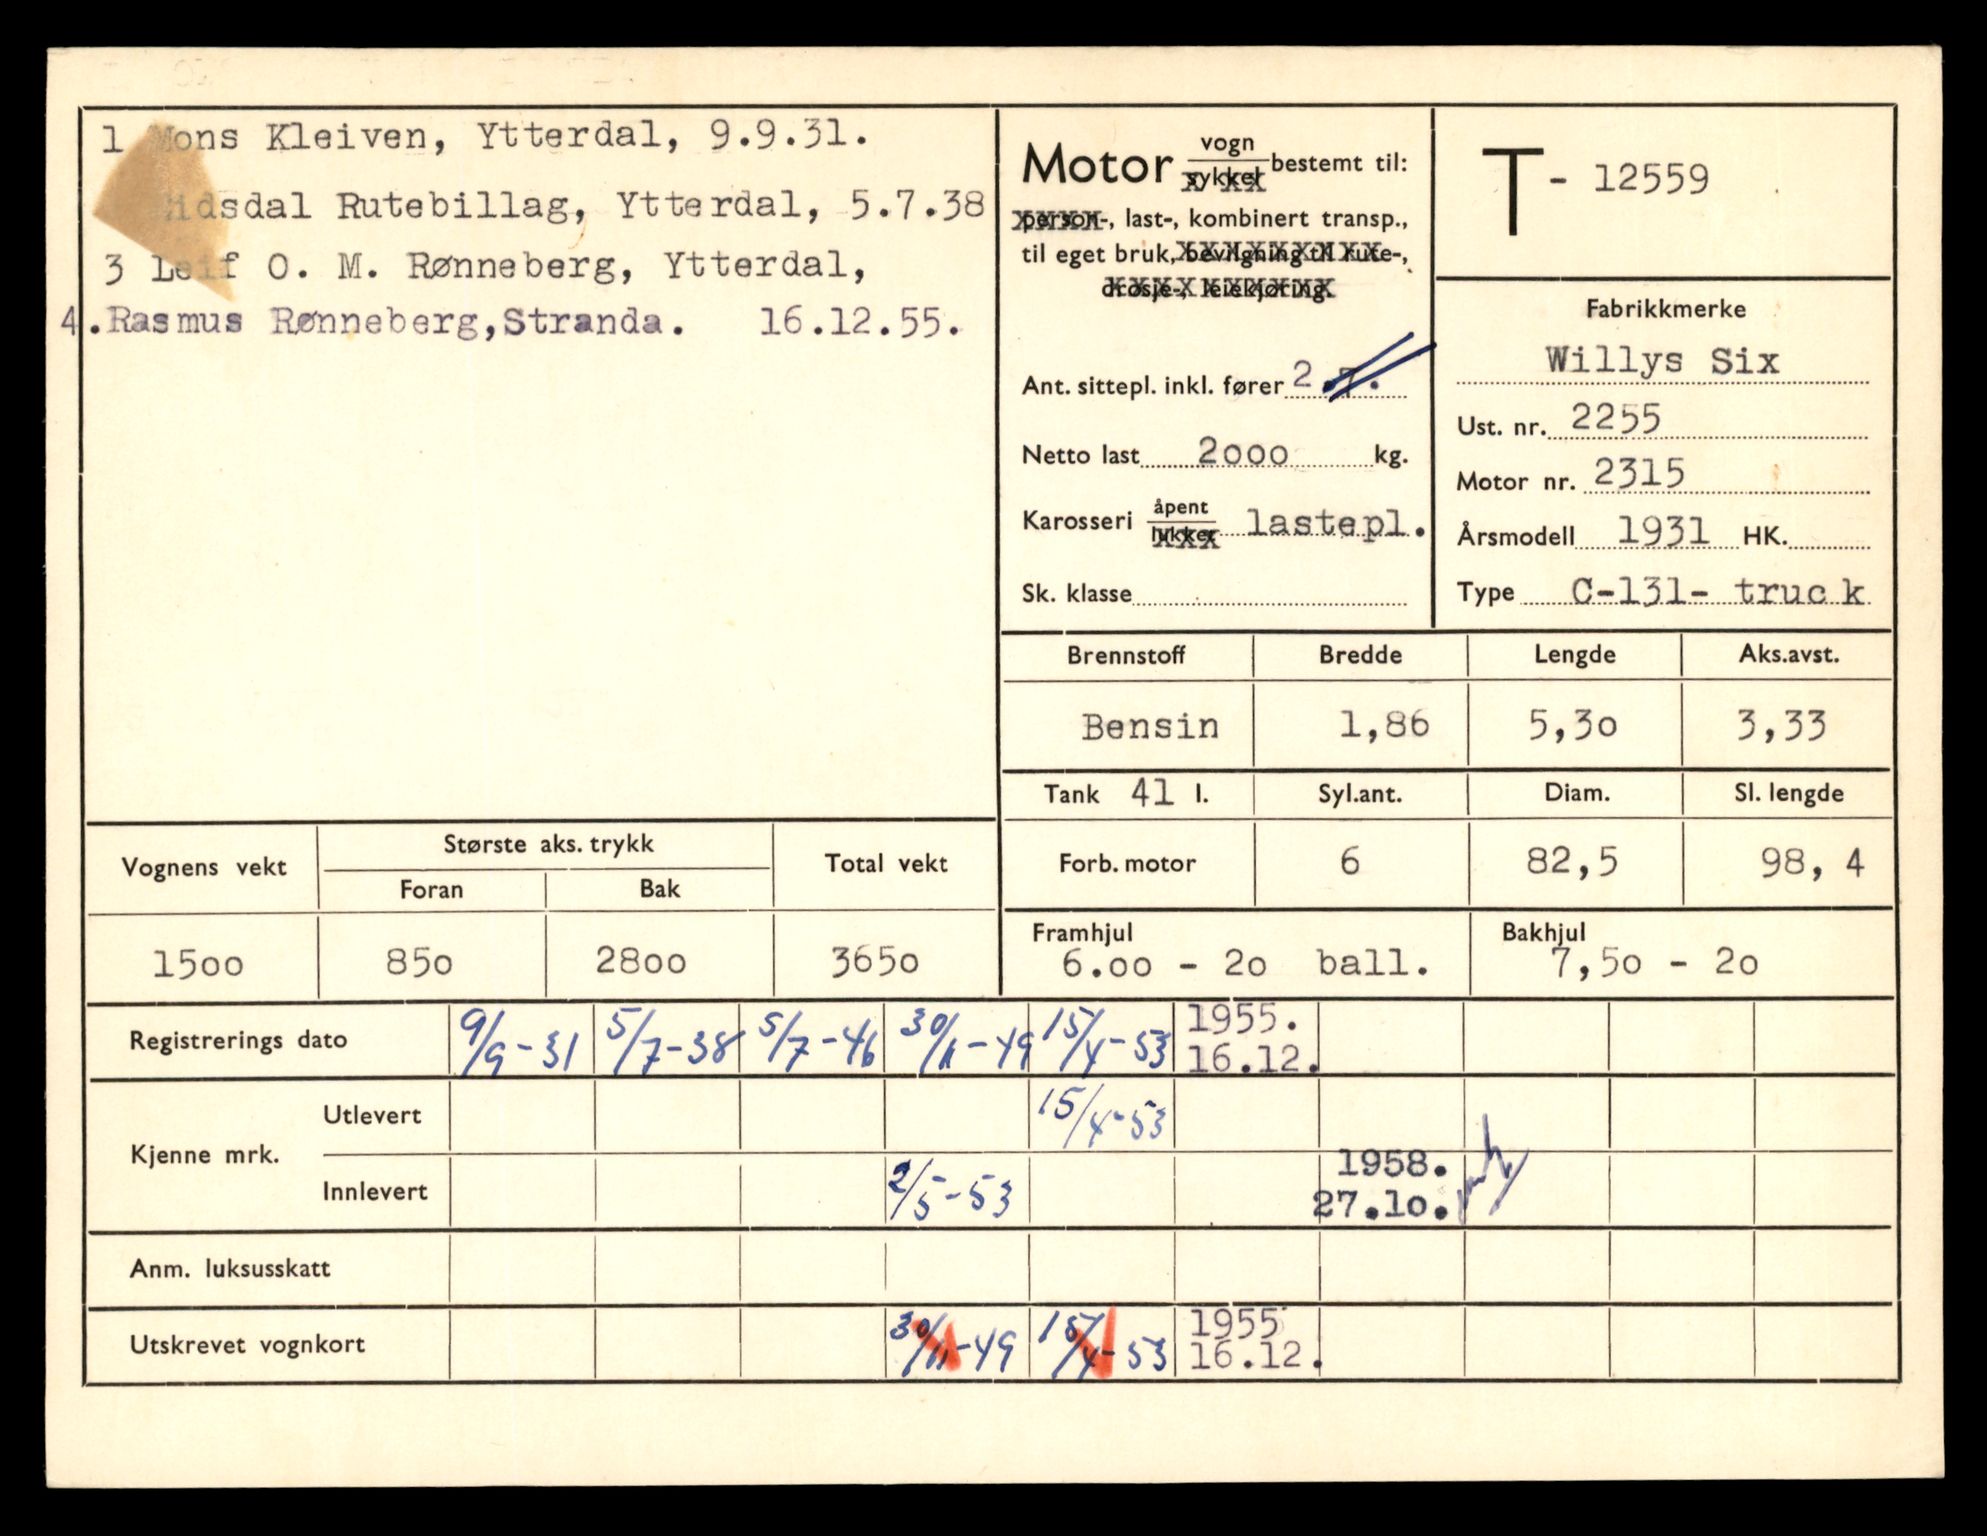 1 Mons Kleiven, Ytterdal, 9.9.31.
idsdal Rutebillag, Ytterdal, 5.7.38
3 Leif O. M. Rønneberg, Ytterdal,
4.Rasmus Rønneberg,Stranda. 16.12.55.
Motor vogn
sykkel bestemt til:
person-, last-, kombinert transp.,
til eget bruk, bevilgning til rute-,
drosje-, leiekjøring.
Ant. sittepl. inkl. fører 2.7.
Netto last 2000 kg.
Karosseri åpent
lukket lastepl.
Sk. klasse
T - 12559
Fabrikkmerke
Willys Six
Ust. nr. 2255
Motor nr. 2315
Årsmodell 1931 HK.
Type C-131- truck
Brennstoff Bredde Lengde Aks.avst.
Bensin 1,86 5,30 3,33
Tank 41 l. Syl.ant. Diam. Sl. lengde
Forb. motor 6 82,5 98,4
Framhjul Bakhjul
6.00 - 20 ball. 7,50 - 20
Vognens vekt Største aks. trykk Total vekt
Foran Bak
1500 850 2800 3650
Registrerings dato 9/9-31 5/7-38 5/7-46 30/11-49 15/4-53 1955.
16.12.
Kjenne mrk.
Utlevert 15/4-53
Innlevert 2/5-53 1958.
27.10.
Anm. luksusskatt
Utskrevet vognkort 30/11-49 15/4-53 1955
16.12.